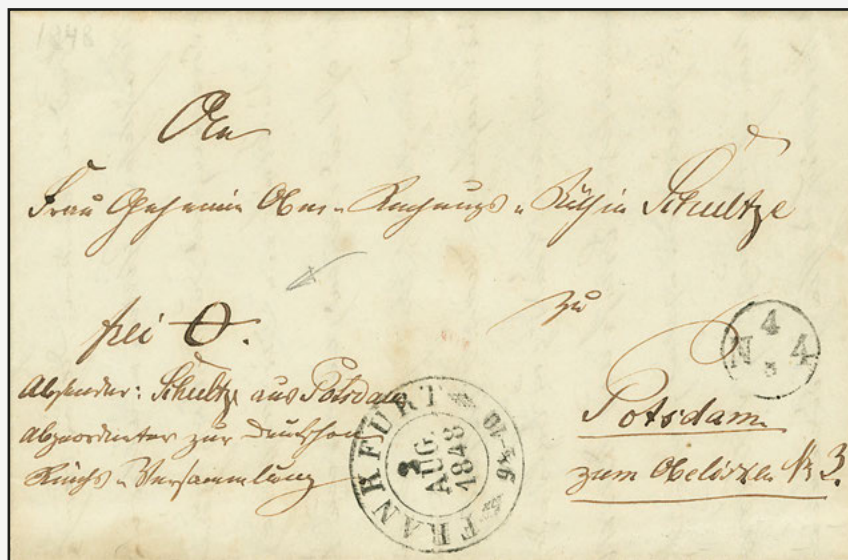 1848
An
Frau Geheimin Ober-Rechnungs-Räthin Schultze
zu
frei 0.
N 4 4
Absender: Schultze aus Potsdam
Abgeordneter zur deutschen
Reichs-Versammlung
FRANKFURT
AUG.
1848
FRANKFURT
Potsdam.
zum Obelisken № 3.